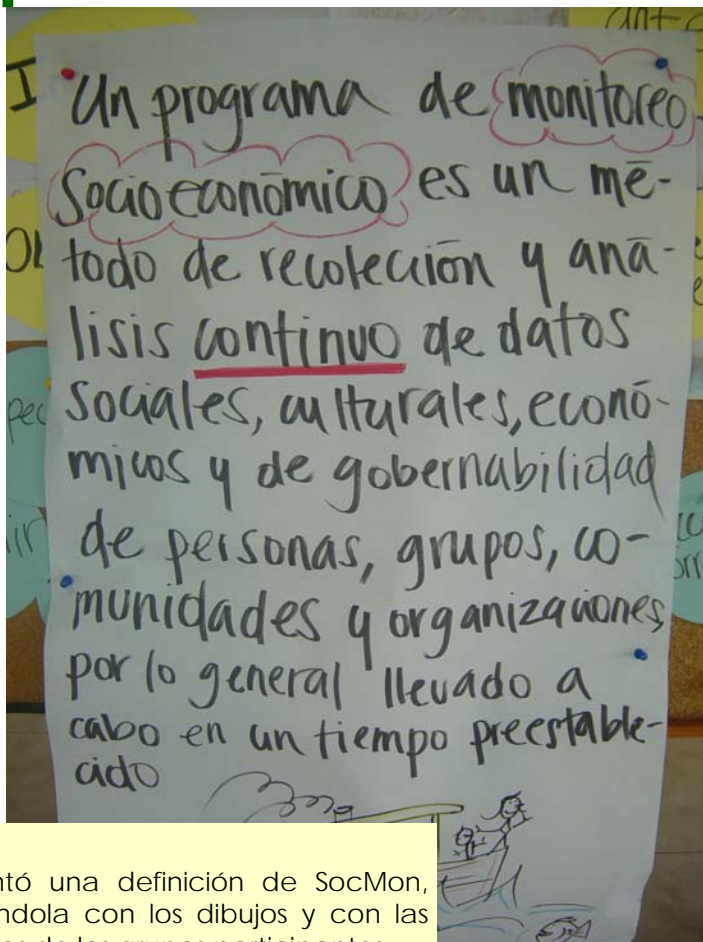 Un programa de monitoreo
Socioeconōmico es un mē-
todo de recolección y anā-
lisis continuo de datos
Sociales, culturales, econó-
micos y de gobernabilidad
de personas, grupos, co-
munidades y organizaciones,
por lo general llevado a
cabo en un tiempo preestable-
cido
ntó una definición de SocMon,
ndola con los dibujos y con las